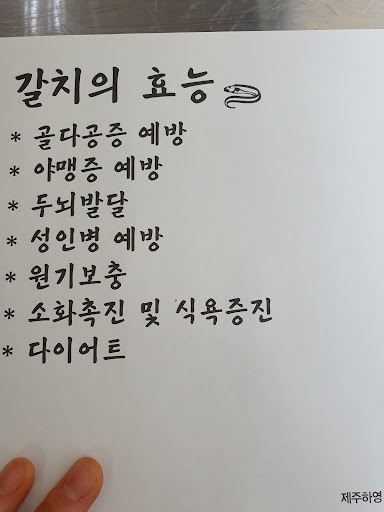 갈치의 효능
* 골다공증 예방
* 야맹증 예방
* 두뇌발달
* 성인병 예방
* 원기보충
* 소화촉진 및 식욕증진
* 다이어트
제주하영